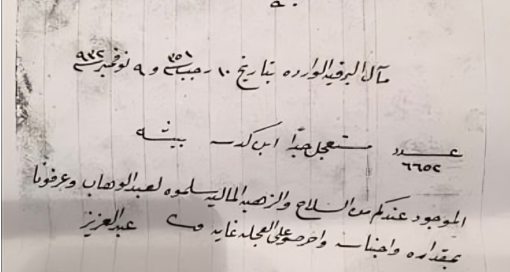 مآل البرقيه الوارده بتاريخ ١٠ رجب ٣٥١ و ٩ نوفمبر ٩٣٢
عدد ٦٦٥٢ مستعجل جداً ابن كدسه بيشه
الموجود عندكم من السلاح والزهبه الماليه سلموه لعبدالوهاب وعرفونا
بمقداره واجناسه واحرصوا على العجله غايه عبدالعزيز